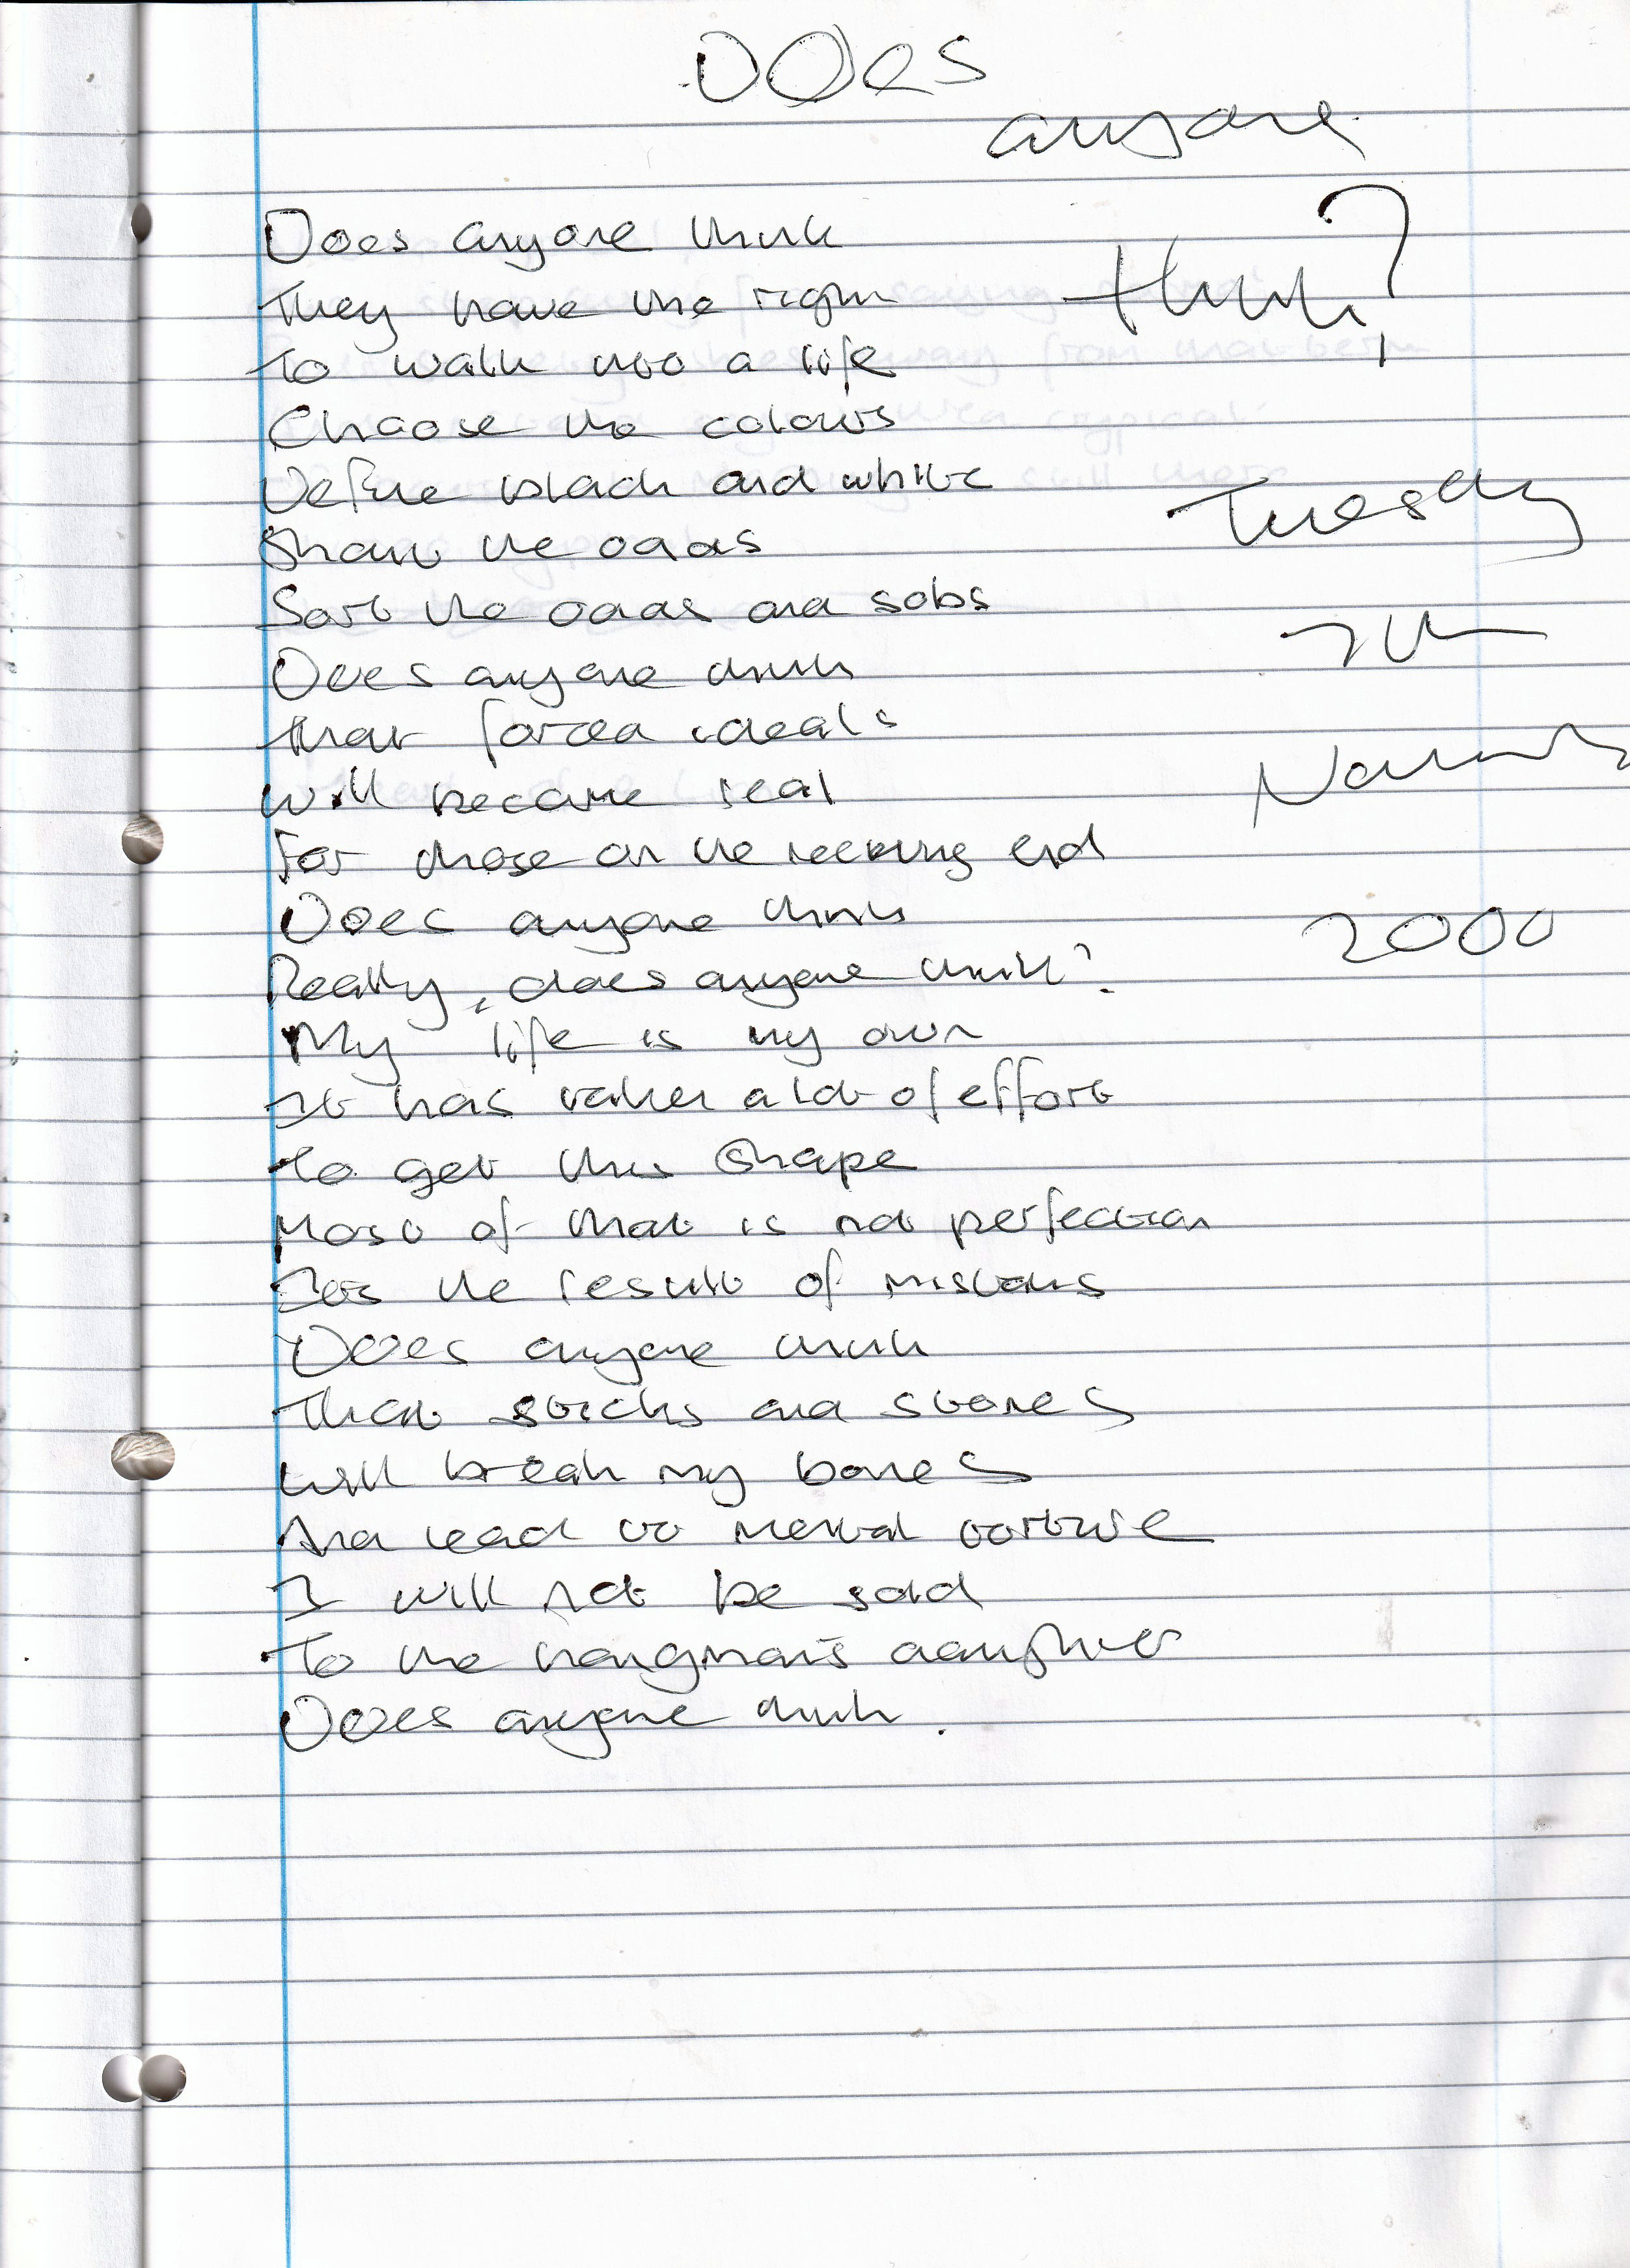 Does
anyone
think?
Does anyone think
They have the right
To walk into a life
Choose the colours
Define black and white
the odds
Sort the odds and sods
Does anyone think
That forced ideals
Will become real
For those on the receiving end
Does anyone think
Really, does anyone think?
My life is my own
It has taken a lot of effort
To get this shape
Most of that is not perfection
Its the result of mistakes
Does anyone think
That sticks and stones
Will break my bones
And lead to mental torture
I will not be sold
To the hangman's daughter
Does anyone think.
Tuesday
7th
November
2000